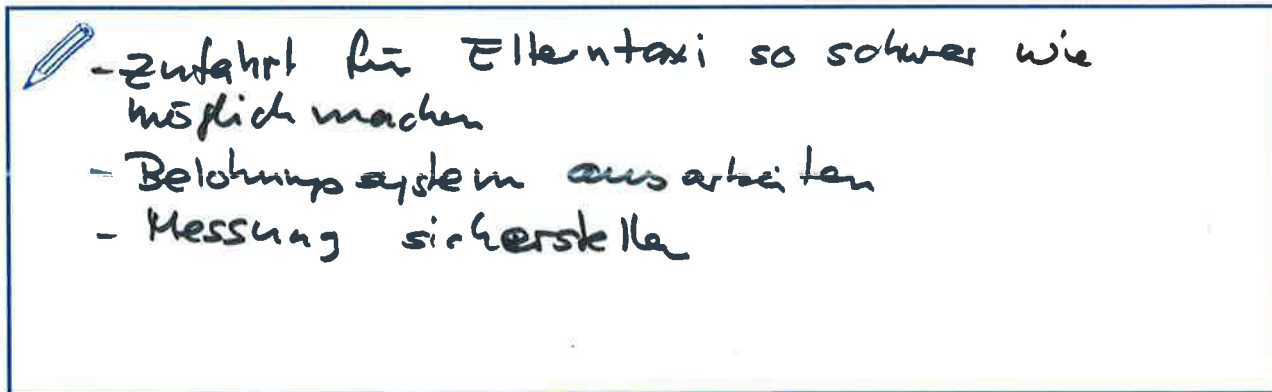 - Zufahrt für Elterntaxi so schwer wie
möglich machen
- Belohnungssystem ausarbeiten
- Messung sicherstellen